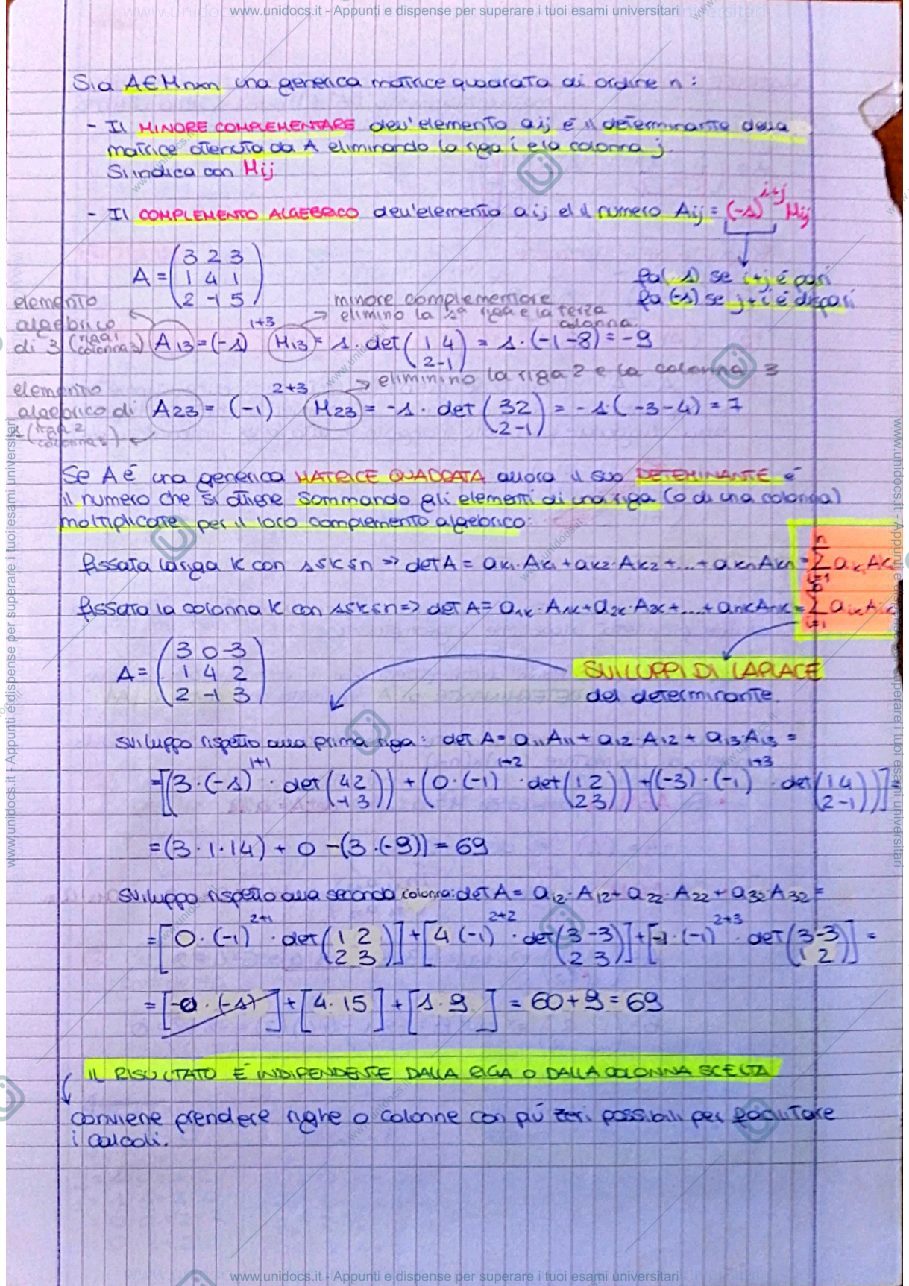 www.unidocs.it - Appunti e dispense per superare i tuoi esami universitari
Sia A∈Mnxn una generica matrice quadrata di ordine n :
- Il MINORE COMPLEMENTARE dell'elemento aij è il determinante della
matrice ottenuta da A eliminando la riga i e la colonna j.
Si indica con Mij
- Il COMPLEMENTO ALGEBRICO dell'elemento aij è il numero Aij = (-1)^i+j Mij
fa( 1) se i+j è pari
fa (-1) se j+i è dispari
A = (3 2 3
1 4 1
2 -1 5)
elemento algebrico di 3 (riga 1 colonna 3)
minore complementare
elimino la 1ª riga e la terza colonna.
A13 = (-1)^1+3 M13 = 1 · det (1 4
2 -1) = 1 · (-1-8) = -9
elemento algebrico di 1 (riga 2
eliminino la riga 2 e la colonna 3
A23 = (-1)^2+3 M23 = -1 · det (3 2
2 -1) = -1 ( -3-4) = 7
Se A è una generica MATRICE QUADRATA allora il suo DETERMINANTE è
il numero che si ottiene sommando gli elementi di una riga (o di una colonna)
moltiplicate per il loro complemento algebrico:
fissata la riga K con 1≤K≤n => det A = ak1 · Ak1 + ak2 · Ak2 + ... + akn Akn = Σ
fissata la colonna K con 1≤K≤n => det A = a1k · A1k + a2k · A2k + ... + ank Ank = Σ
SVILUPPI DI LAPLACE
del determinante.
A = (3 0 -3
1 4 2
2 -1 3)
sviluppo rispetto alla prima riga : det A = a11 A11 + a12 · A12 + a13 · A13 =
= [(3 · (-1)^1+1 · det (4 2
-1 3)) + (0 · (-1)^1-2 · det (1 2
2 3)) + (-3) · (-1)^1+3 · det (1 4
2 -1))] =
= (3 · 1 · 14) + 0 - (3 · (-9)) = 69
sviluppo rispetto alla seconda colonna: det A = a12 · A12 + a22 · A22 + a32 · A32 =
= [0 · (-1)^2+1 · det (1 2
2 3)] + [4 (-1)^2+2 · det (3 -3
2 3)] + [-1 · (-1)^2+3 · det (3 -3
1 2)] =
= [-0 · (-1)] + [4 · 15] + [1 · 9 ] = 60 + 9 = 69
IL RISULTATO È INDIPENDENTE DALLA RIGA O DALLA COLONNA SCELTA
conviene prendere righe o colonne con più zeri possibili per facilitare
i calcoli.
www.unidocs.it - Appunti e dispense per superare i tuoi esami universitari